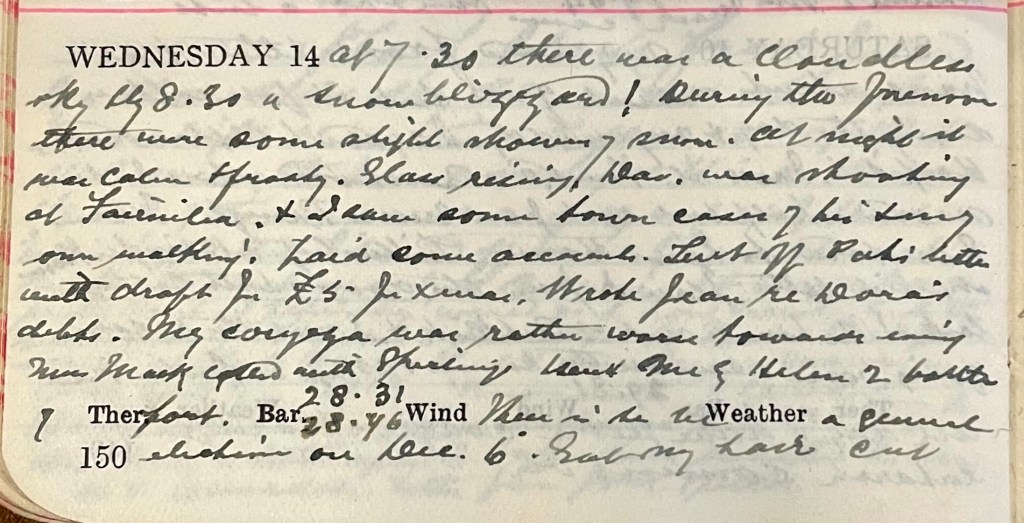 WEDNESDAY 14 at 7.30 there was a cloudless
sky by 8.30 a snow blizzard! During the forenoon
there were some slight showers of snow. At night it
was calm & frosty. Glass rising. Dav. was shooting
at & I saw some town cases for him & my
own walking! Paid some accounts. Sent off letter
with draft for £5 for Xmas. Wrote Jean re Dora's
debts. My was rather worse towards evng
Miss Mack with Sent me & Helen 2 bottles
of Ther port. Bar. 28.31 28.46 Wind There is to be Weather a general
150 election on Dec. 6. Got my hair cut